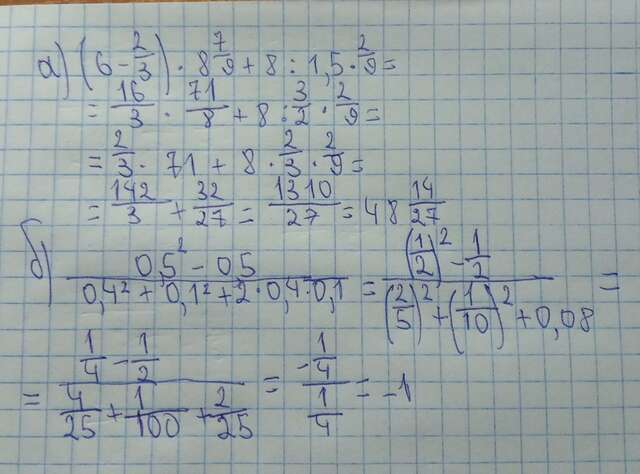 а) (6 - 2/3) · 8 7/9 + 8 : 1,5 · 2/9 =
= 16/3 · 71/8 + 8 : 3/2 · 2/9 =
= 2/3 · 71 + 8 · 2/3 · 2/9 =
= 142/3 + 32/27 = 1310/27 = 48 14/27
б) (0,5² - 0,5)/(0,4² + 0,1² + 2·0,4·0,1) = ((1/2)² - 1/2)/((2/5)² + (1/10)² + 0,08) =
= (1/4 - 1/2)/(4/25 + 1/100 + 2/25) = (-1/4)/(1/4) = -1